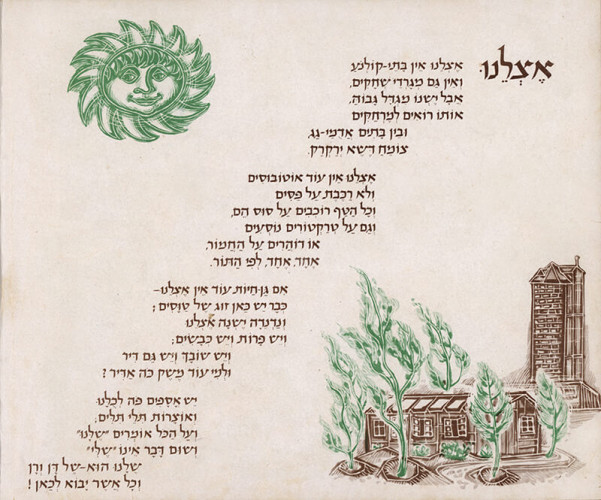 אֶצְלֵנוּ
אֶצְלֵנוּ אֵין בָּתֵּי-קוֹלְנֹעַ
וְאֵין גַּם מְגָרְדֵי שְׁחָקִים,
אֲבָל יֶשְׁנוֹ מִגְדָּל גָּבוֹהַּ,
אוֹתוֹ רוֹאִים לְמֶרְחַקִּים
וּבֵין בָּתִּים אֲדֻמֵּי-גַג,
צוֹמֵחַ דֶּשֶׁא יְרַקְרַק.
אֶצְלֵנוּ אֵין עוֹד אוֹטוֹבּוּסִים
וְלֹא רַכֶּבֶת עַל פַּסִּים
וְכָל הַטַּף רוֹכְבִים עַל סוּס הֵם,
וְגַם עַל טְרַקְטוֹרִים נוֹסְעִים
אוֹ דוֹהֲרִים עַל הַחֲמוֹר,
אֶחָד, אֶחָד, לְפִי הַתּוֹר.
אִם גַּן-חַיּוֹת עוֹד אֵין אֶצְלֵנוּ–
כְּבָר יֵשׁ כָּאן זוּג שֶׁל טַוָּסִים;
וְנַדְנֵדָה יֶשְׁנָהּ אֶצְלֵנוּ
וְיֵשׁ פָּרוֹת וְיֵשׁ כְּבָשִׂים;
וְיֵשׁ שׁוֹבָךְ וְיֵשׁ גַּם דִּיר
וּלְמִי עוֹד מֶשֶׁק כֹּה אַדִּיר?
יֵשׁ אֲסָמִים פֹּה לְכֻלָּנוּ
וְאוֹצָרוֹת תִּלֵּי תִלִּים;
וְעַל הַכֹּל אוֹמְרִים "שֶׁלָּנוּ"
וְשׁוּם דָּבָר אֵינוֹ "שֶׁלִּי"
שֶׁלָּנוּ הוּא–שֶׁל דָּן וְרָן
וְכָל אֲשֶׁר יָבוֹא לְכָאן!